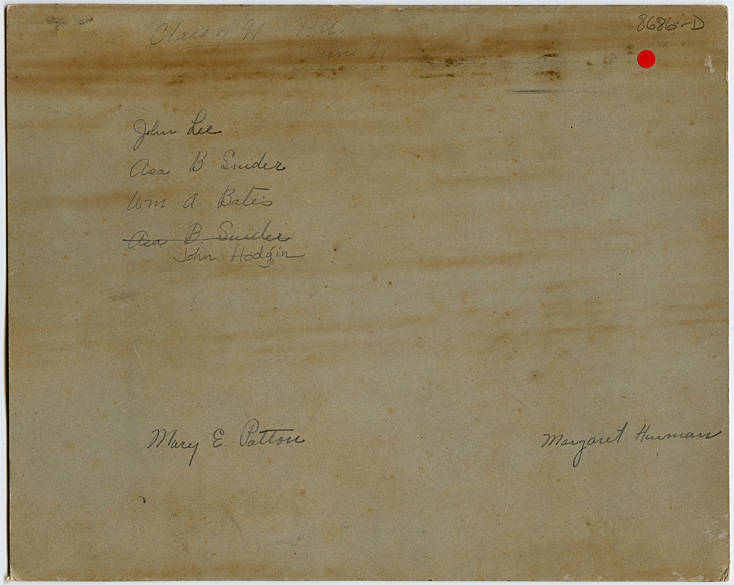 Class of '91 P.U.
8686-D
John Lee
Asa B Snider
Wm A Batis
Asa B. Snider
John Hodgin
Mary E Patton
Margaret